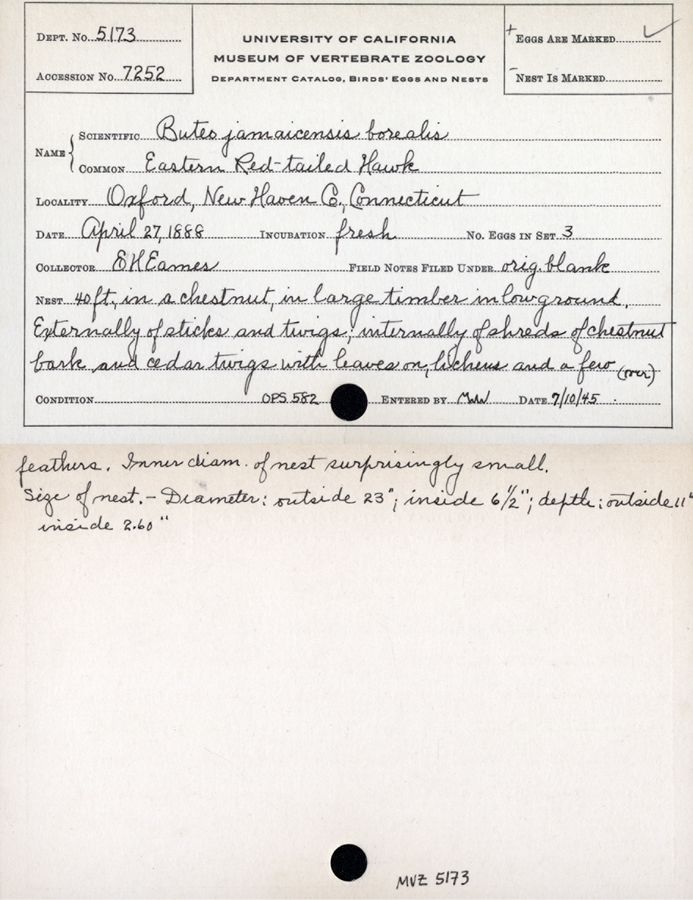 DEPT. NO. 5173
ACCESSION NO. 7252
UNIVERSITY OF CALIFORNIA
MUSEUM OF VERTEBRATE ZOOLOGY
DEPARTMENT CATALOG, BIRDS' EGGS AND NESTS
+ EGGS ARE MARKED ✓
- NEST IS MARKED
NAME { SCIENTIFIC Buteo jamaicensis borealis
COMMON Eastern Red-tailed Hawk
LOCALITY Oxford, New Haven Co., Connecticut
DATE April 27, 1888 INCUBATION fresh NO. EGGS IN SET 3
COLLECTOR EHEames FIELD NOTES FILED UNDER orig. blank
NEST 40 ft, in a chestnut, in large timber in low ground.
Externally of sticks and twigs; internally of shreds of chestnut
bark and cedar twigs with leaves on, lichens and a few (over)
CONDITION OPS 582 ENTERED BY MW DATE 7/10/45
feathers. Inner diam. of nest surprisingly small.
Size of nest. - Diameter: outside 23"; inside 6 1/2"; depth: outside 11"
inside 2.60"
MVZ 5173